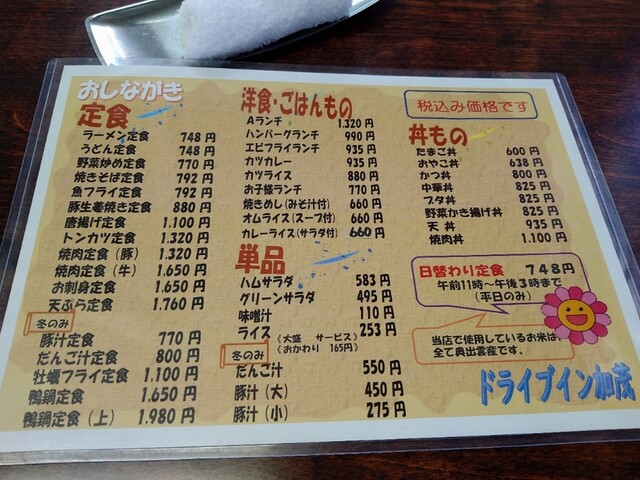 おしながき
定食
ラーメン定食 748円
うどん定食 748円
野菜炒め定食 770円
焼きそば定食 792円
魚フライ定食 792円
豚生姜焼き定食 880円
唐揚げ定食 1.100円
トンカツ定食 1.320円
焼肉定食（豚） 1.320円
焼肉定食（牛） 1.650円
お刺身定食 1.650円
天ぷら定食 1.760円
冬のみ
豚汁定食 770円
だんご汁定食 800円
牡蠣フライ定食 1.100円
鴨鍋定食 1.650円
鴨鍋定食（上） 1.980円
洋食・ごはんもの
Aランチ 1.320円
ハンバーグランチ 990円
エビフライランチ 935円
カツカレー 935円
カツライス 880円
お子様ランチ 770円
焼きめし（みそ汁付） 660円
オムライス（スープ付） 660円
カレーライス（サラダ付） 660円
単品
ハムサラダ 583円
グリーンサラダ 495円
味噌汁 110円
ライス 253円
（大盛 サービス）
（おかわり 165円）
冬のみ
だんご汁 550円
豚汁（大） 450円
豚汁（小） 275円
税込み価格です
丼もの
たまご丼 600円
おやこ丼 638円
かつ丼 800円
中華丼 825円
ブタ丼 825円
野菜かき揚げ丼 825円
天 丼 935円
焼肉丼 1.100円
日替わり定食 748円
午前11時～午後3時まで
（平日のみ）
当店で使用しているお米は、
全て奥出雲産です。
ドライブイン加茂